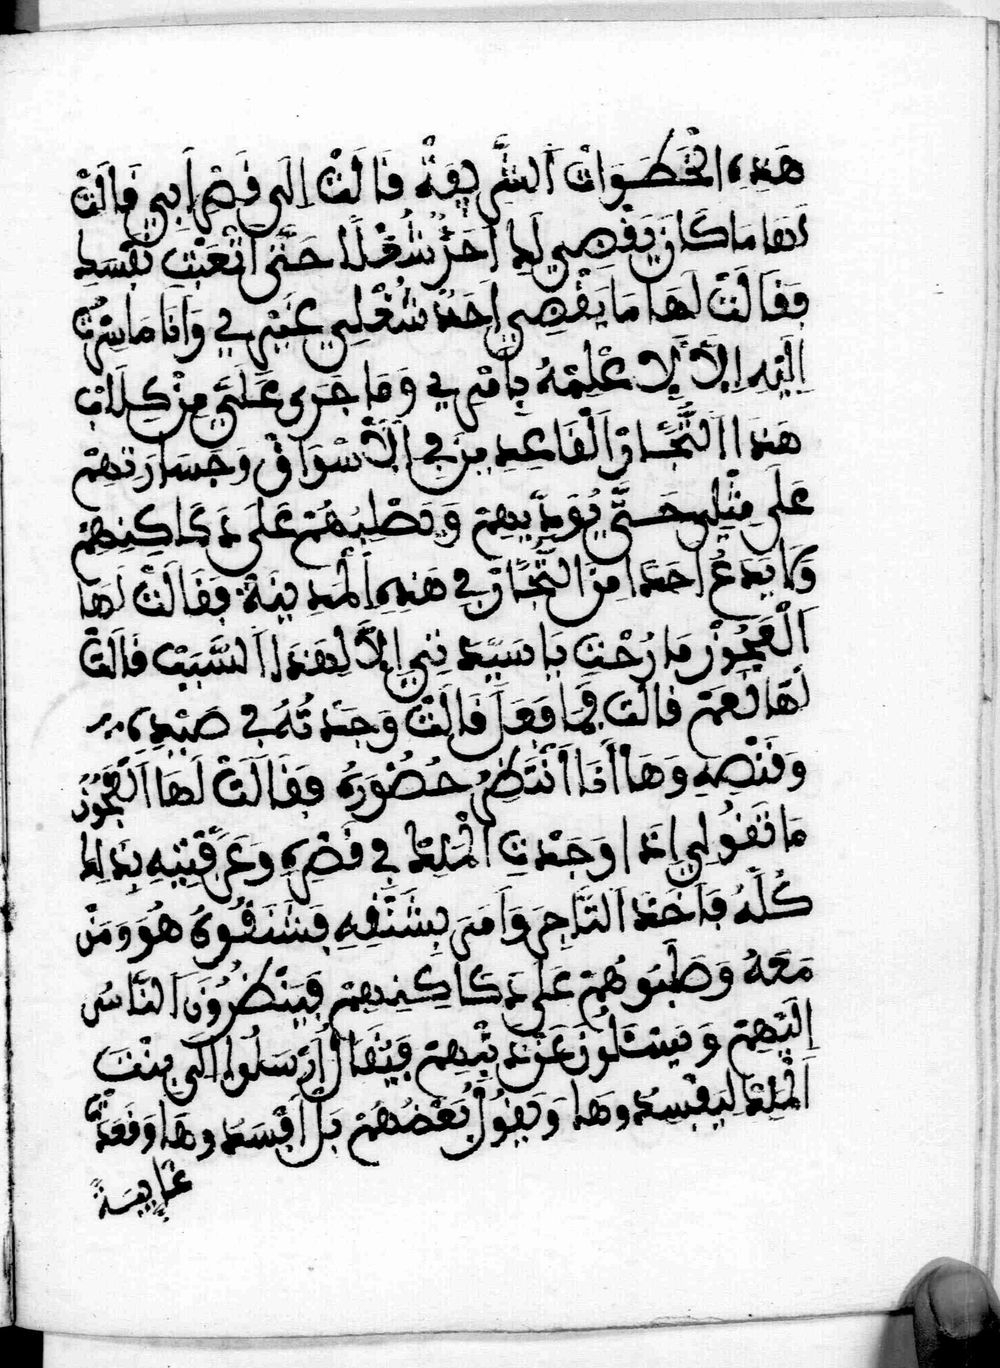 هَذِهِ الْخَطَوَاتْ اَلشَّرِيفَةْ فَالَتْ اِلَى فَصْرِ اَبِي فَالَتْ
لَهَا مَا كَانَ يَفْضِي لَكِ اَحَدٌ شُغْلًا حَتَّى اَتْعَبْتِ نَفْسَكِ
فَفَالَتْ لَهَا مَا يَفْضِي اَحَدٌ شُغْلِي غَيْرِي وَاَنَا مَا سِرْتُ
اِلَيْهِ اِلَّا لِاُعْلِمَهُ بِاَمْرِي وَمَا جَرَى عَلَيَّ مِنْ كِلَابِ
هَذَا التُّجَّارْ اَلْفَاعِدِينَ فِي اَلْاَسْوَاقْ وَجَسَارَتِهِمْ
عَلَى مِثْلِي حَتَّى يُوَدِّبِهِمْ وَيَصْلِبُهُمْ عَلَى دَكَاكِنِهِمْ
وَلَا يَدَعُ اَحَدًا مِنَ التُّجَّارْ فِي هَذِهِ اَلْمَدِينَةْ فَفَالَتْ لَهَا
اَلْعَجُوزْ مَا رُحْتِ يَا سَيِّدَتِي اِلَّا لِهَذَا السَّبَبْ فَالَتْ
لَهَا نَعَمْ فَالَتْ فَمَا فَعَلَ فَالَتْ وَجَدْتُهُ فِي صَيْدِهِ
وَفَنْصِهِ وَهَا اَنَا اَنْتَظِرُ حُضُورَهُ فَفَالَتْ لَهَا اَلْعَجُوزْ
مَا تَفُولِي اِذَا وَجَدْتِ الْمَلِكْ فِي فَصْرِهِ وَعَرَّفْتِيهِ بِذَلِكَ
كُلِّهُ فَاَخَذَ التَّاجِرَ وَاَمَرَ بِشَنْفِهِ فَشَنَفُوهُ هُوَ وَمَنْ
مَعَهُ وَصَلَبُوهُمْ عَلَى دَكَاكِنِهِمْ فَيَنْظُرُونَ النَّاسُ
اِلَيْهِمْ وَيَسْئَلُونَ عَنْ ذَنْبِهِمْ فَيُفَالُ اَرْسَلُوا اِلَى بِنْتِ
الْمَلِكْ لِيَفْسِدُوهَا وَيَفُولُ بَعْضُهُمْ بَلْ اَفْسَدُوهَا وَفَعَدَتْ
غَايِبَةً